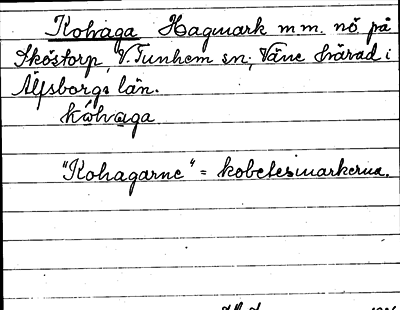 Kohaga Hagmark m m. nö på
Sköttorp, V. Tunhem sn; Väne härad i
Älfsborgs län.
kóhaga
"Kohagarne" = kobetesmarkerna.